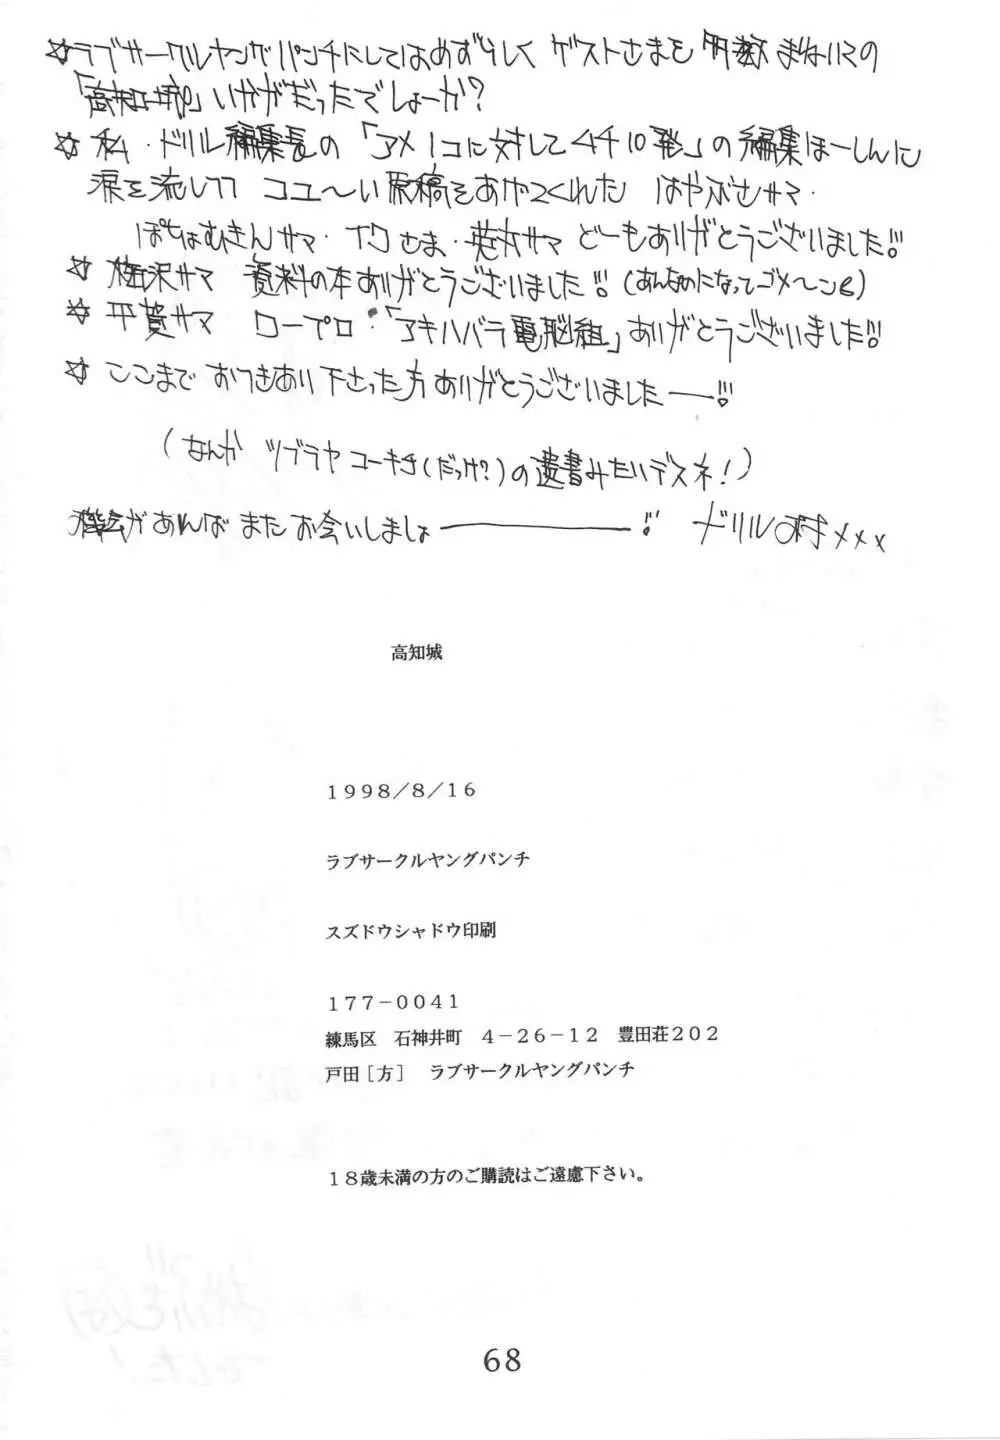 ☆ラブサークルヤングパンチにしてはめずらしく ゲストさまを 多数 まねいての
「高知城」いかがだったでしょーか?
☆ 私・ドリル編集長の「アメ1コに対してムチ10発」の編集ほーしんに
涙を流しつつ コユ〜い原稿をあげてくれた はやぶさサマ・
ぽちはむきんサマ・イワさま・英太サマ どーもありがとうございました!!
☆ 梅沢サマ 資料の本ありがとうございました!!(あんなめになってゴメ〜ン)
☆ 平賀サマ ロープロ・「アキハバラ電脳組」ありがとうございました!!
☆ ここまで おつきあい下さった方ありがとうございました――!!
(なんか ツブラヤ コーキチ(だっけ?)の遺書みたいデスネ!)
機会があんば またお会いしましょ――――!! ドリル村xxx
高知城
1998/8/16
ラブサークルヤングパンチ
スズドウシャドウ印刷
177-0041
練馬区 石神井町 4-26-12 豊田荘202
戸田[方] ラブサークルヤングパンチ
18歳未満の方のご購読はご遠慮下さい。
68